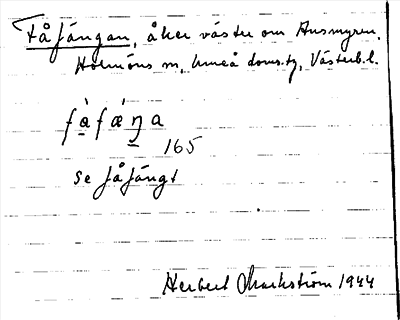 Fåfängan, åker väster om Ansmyren,
Holmöns sn, Umeå doms.tg, Västerb.l.
fàfǽŋa
165
se fåfängt
Herbert Markström 1944